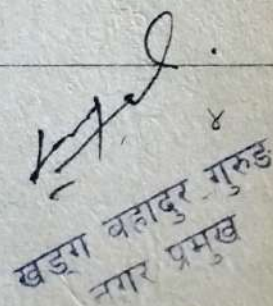 ४
खड्ग वहादुर गुरुङ
नगर प्रमुख